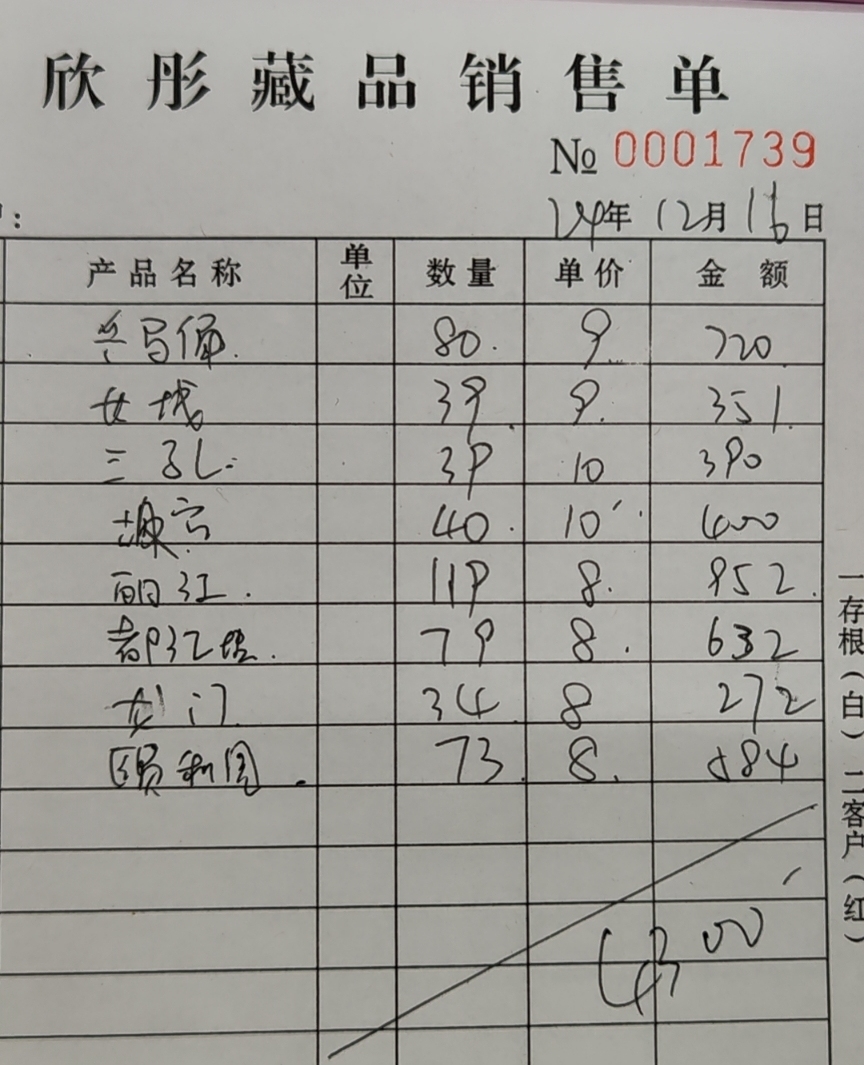 欣彤藏品销售单
№ 0001739
24年 12月 16日
产品名称 单位 数量 单价 金额
兵马俑 80 9 720
长城 39 9 351
三孔 39 10 390
故宫 40 10 400
丽江 119 8 952
都江堰 79 8 632
龙门 34 8 272
颐和园 73 8 584
4300
一存根(白) 二客户(红)